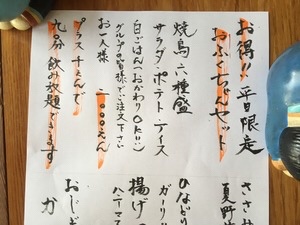 お得!! 平日限定
おふくちゃんセット
焼鳥六種盛
サラダ・ポテト・アイス
白ごはん(おかわりOKだい)
グループの皆様でご注文下さい
お一人様 二〇〇〇えん
プラス千えんで
九〇分飲み放題できます
夏野
ひなどり
ガーリ
揚げ
ハニーマス
おじ
ガ